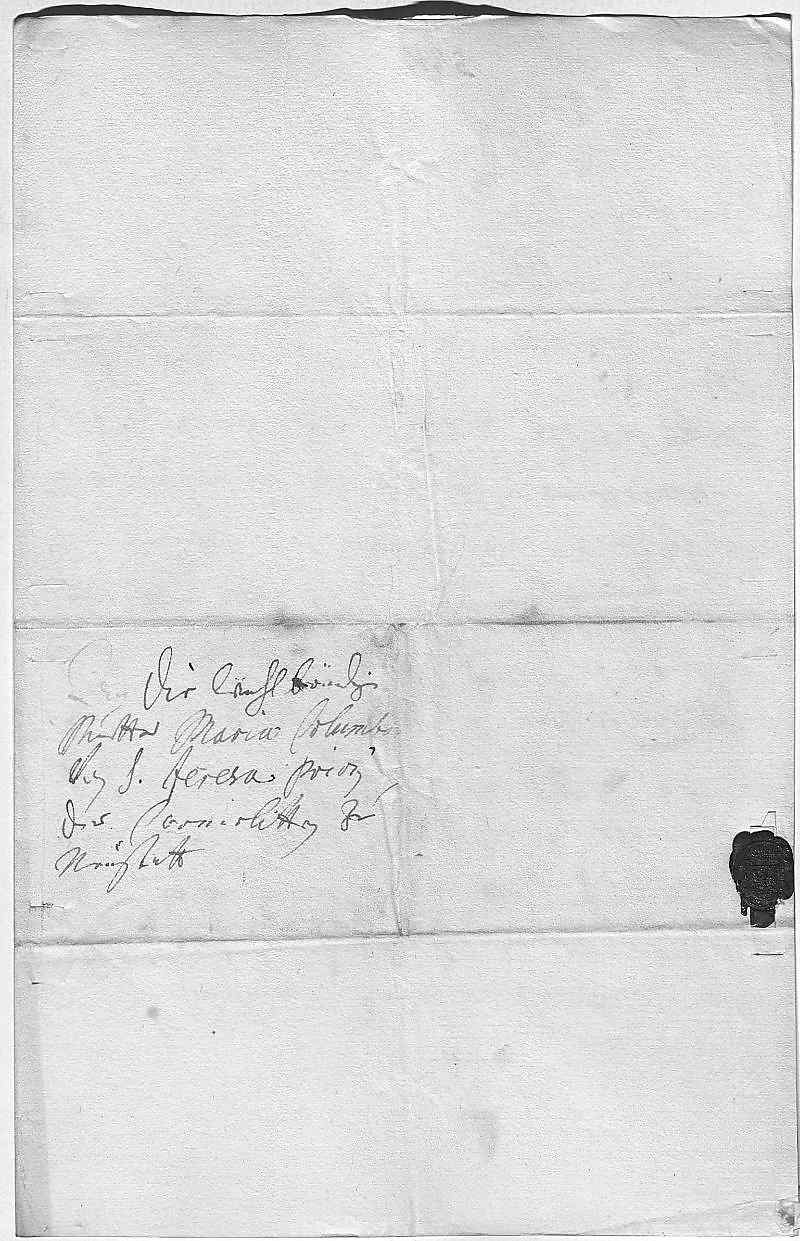 Der
Mutter Maria Columba
S. Teresa prior
der Carmelitten zu
Neüstatt